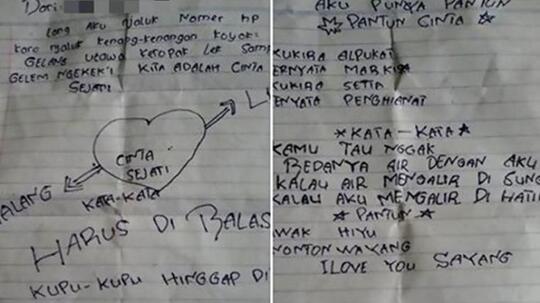 Dari:
Long AKU Njaluk Nomer HP
karo njaluk kenang-kenangan koyok:
GELANG utawa KetoPak Lek Samp
GELEM NGEKEK'I KITA ADALAH CINTA
SEJATI
CINTA
SEJATI
ALANG
KATA-KATA
HARUS DI BALAS
KUPU-KUPU HINGGAP DI
AKU PUNYA PANTUN
PANTUN CINTA
KUKIRA ALPUKAT
ERNYATA MARKISA
KUKIRA SETIA
ENYATA PENGHIANAT
KATA-KATA
KAMU TAU NGGAK
BEDANYA AIR DENGAN AKU
KALAU AIR MENGALIR DI SUNG
KALAU AKU MENGALIR DI HATI
PANTUN
WAK HIYU
NONTON WAYANG
I LOVE YOU SAYANG